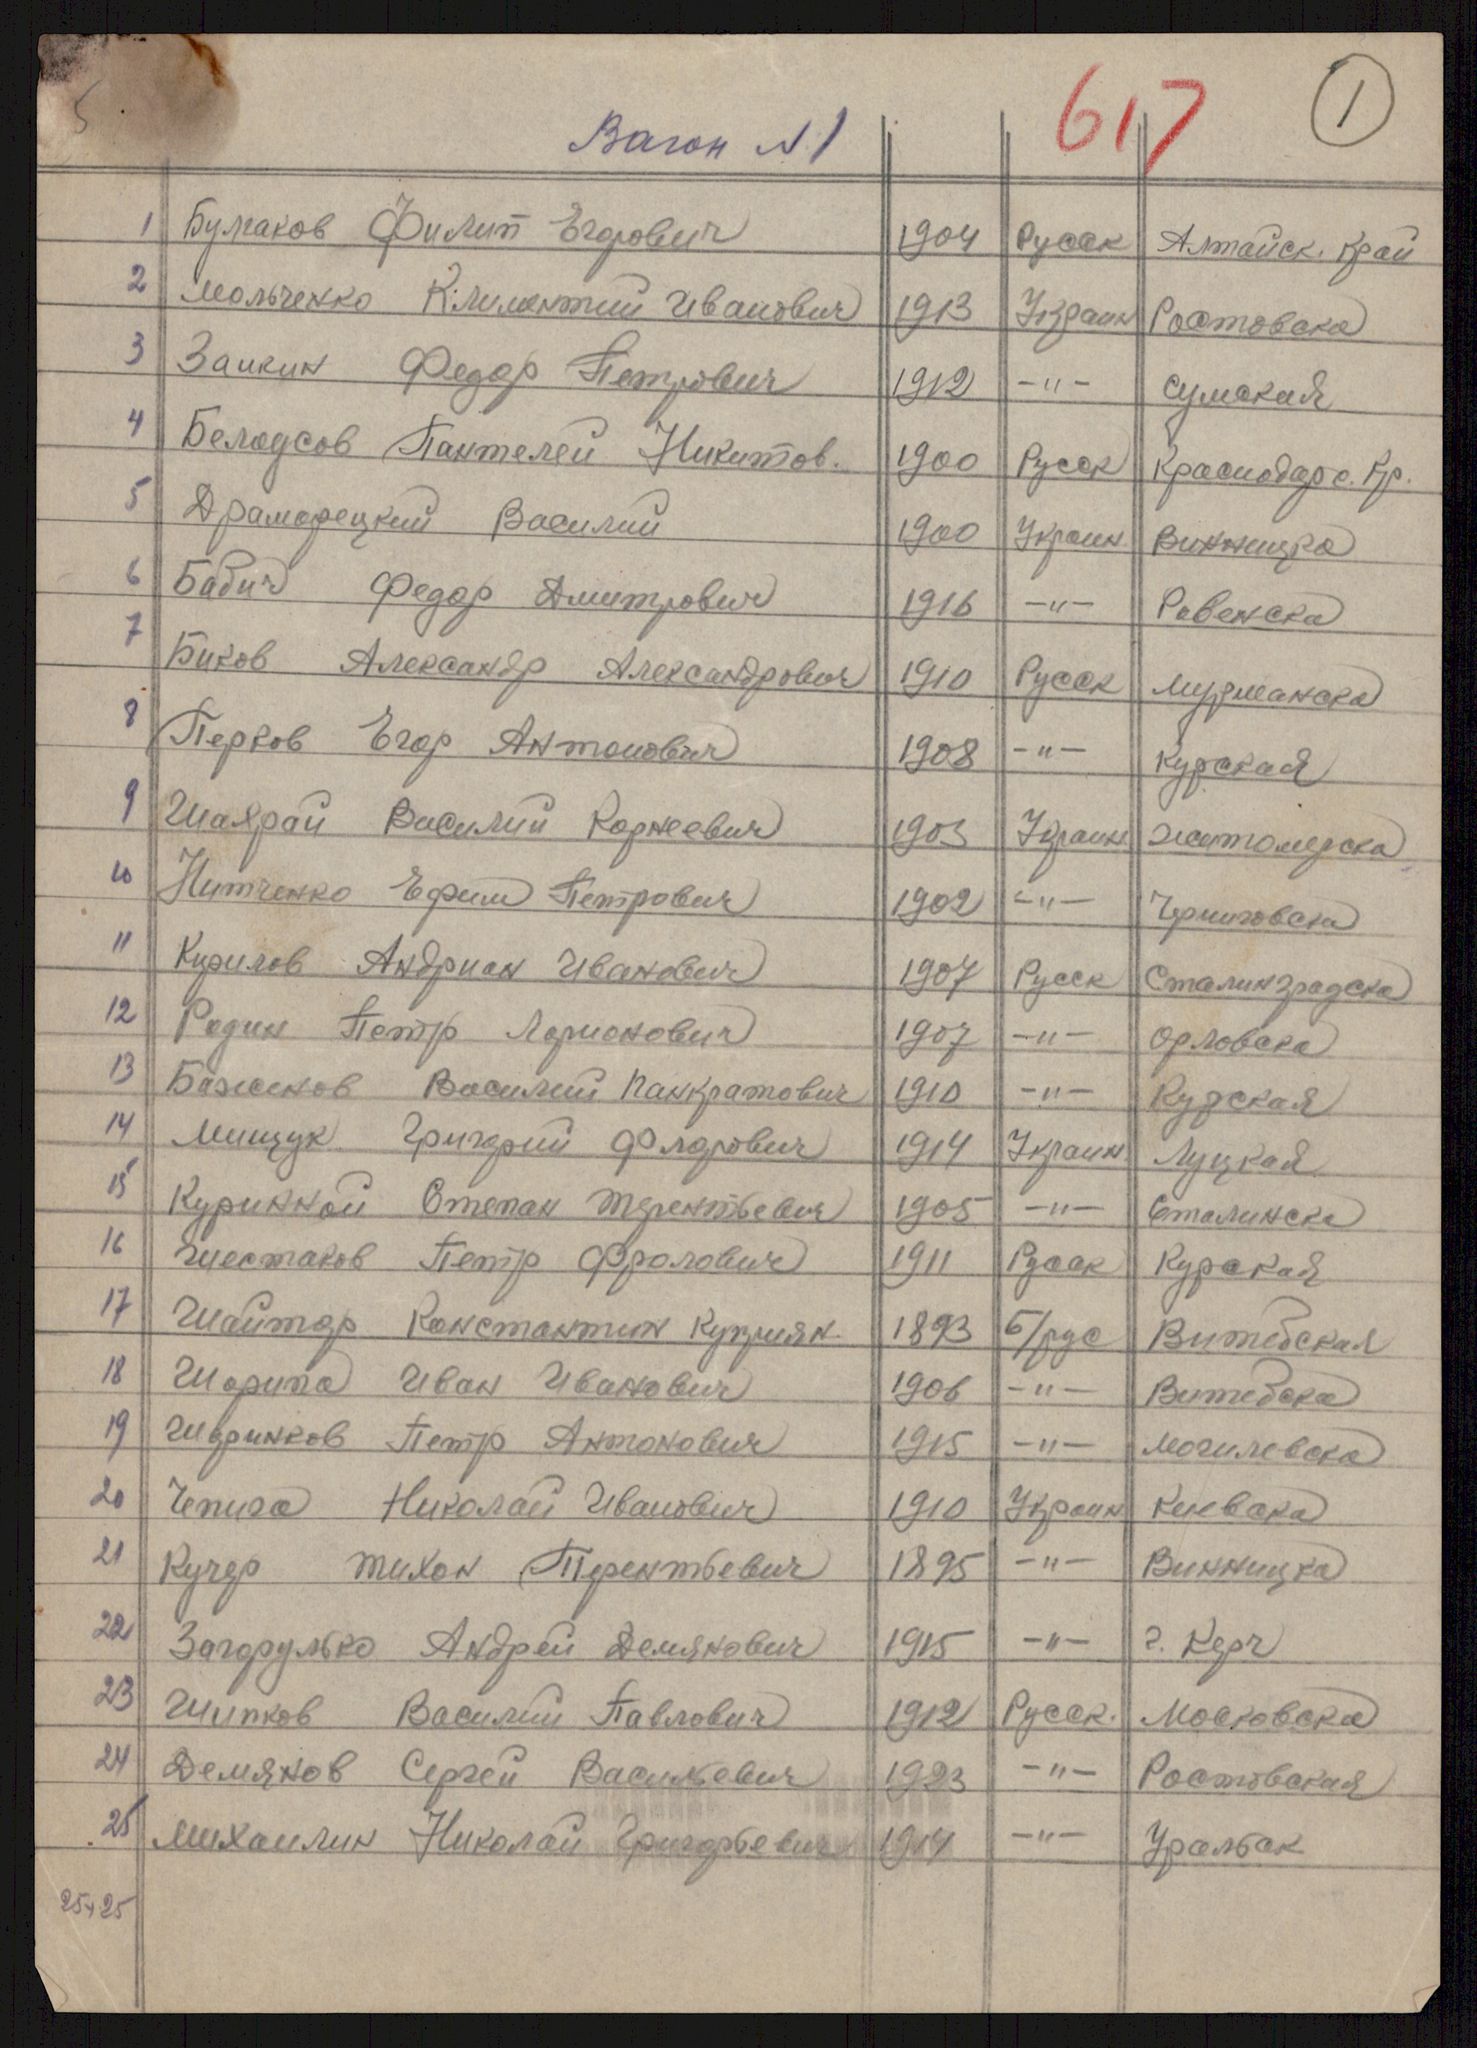 5
617
1
Вагон № 1
1 Булгаков Филип Егорович 1904 Русск Алтайск. край
2 Мольченко Климентий Иванович 1913 Украин Ростовска
3 Заикин Федор Петрович 1912 -"- Сумская
4 Белоусов Пантелей Никитов. 1900 Русск Краснодарс. Кр.
5 Драмарецкий Василий 1900 Украин Винницка
6 Бабич Федор Дмитрович 1916 -"- Ровенска
7 Биков Александр Александрович 1910 Русск Мурманска
8 Перков Егор Антонович 1908 -"- Курская
9 Шаярай Василий Корнеевич 1903 Украин Житомерска
10 Нитченко Ефим Петрович 1902 -"- Черниговска
11 Курилов Андриан Иванович 1907 Русск Сталинградска
12 Родин Петр Ларионович 1907 -"- Орловска
13 Баженов Василий Панкратович 1910 -"- Курская
14 Мищук Григорий Флорович 1914 Украин Луцкая
15 Куринной Степан Терентьевич 1905 -"- Сталинска
16 Шестаков Петр Фролович 1911 Русск Курская
17 Шайтор Константин Куприян. 1893 б/рус Витебская
18 Шорипа Иван Иванович 1906 -"- Витебска
19 Шаринков Петр Антонович 1915 -"- Могилевска
20 Чепига Николай Иванович 1910 Украин Киевска
21 Кучер Тихон Терентьевич 1895 -"- Винницка
22 Загорулько Андрей Демянович 1915 -"- г. Керч
23 Шипков Василий Павлович 1912 Русск. Московска
24 Демянов Сергей Васильевич 1923 -"- Ростовская
25 Михаилин Николай Григорьевич 1914 -"- Уральск
25+25